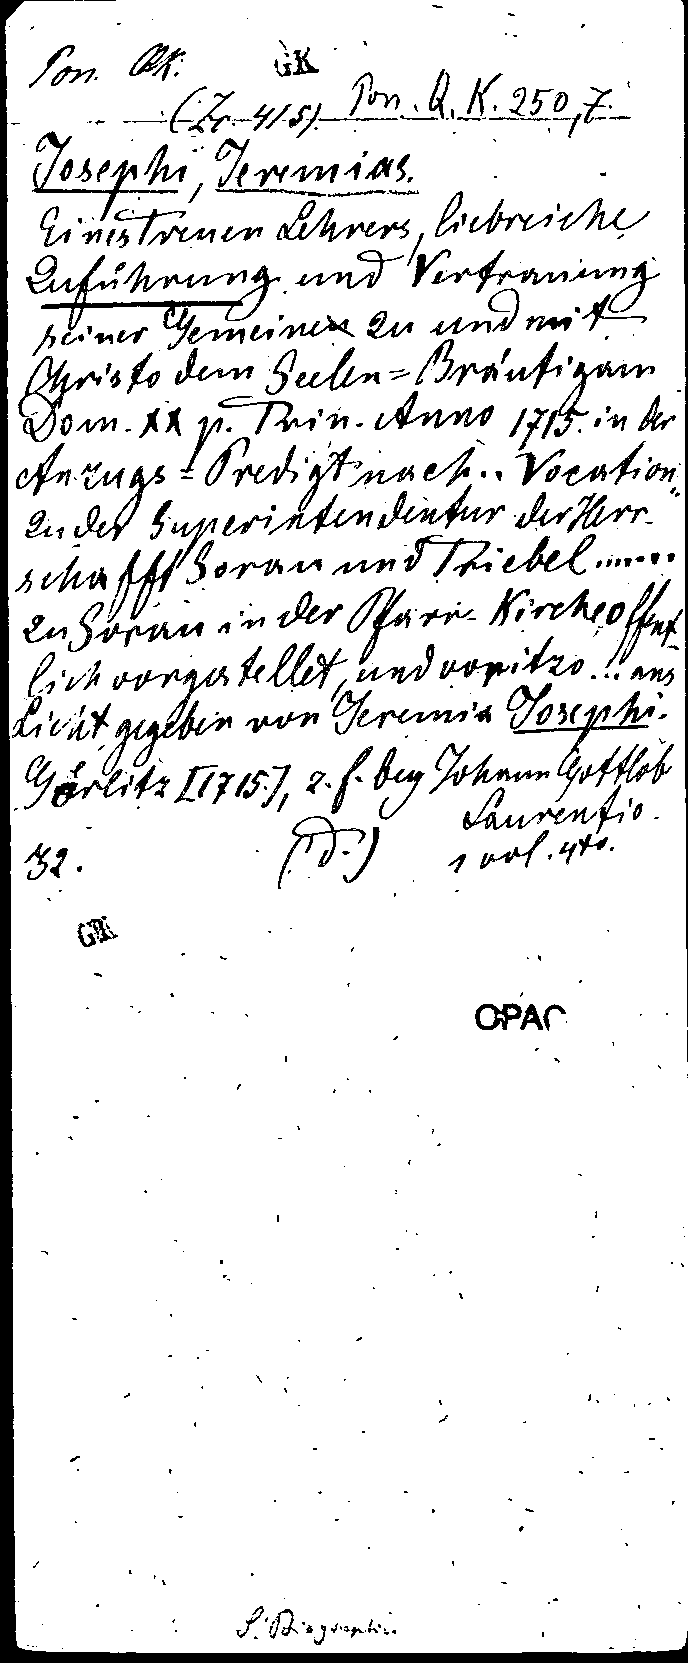 Pon. QK. GK
(Zc. 415) Pon. Q. K. 250,7.
Josephi, Jeremias.
Eines Treuen Lehrers, liebreiche
Zuführung und Vertrauung
seiner Gemeine zu und mit
Christo dem Seelen=Bräutigam
Dom. XX p. Trin. Anno 1715. in der
Anzugs=Predigt nach.. Vocation
zu der Superintendentur der Herr-
schafft Sorau und Triebel......
zu Sorau in der Pfarr-Kirche öffent-
lich vorgestellet, und vonitzo... ans
Licht gegeben von Jeremia Josephi.
Görlitz [1715], z. f. bey Johann Gottlob
Laurentio.
32. (d.) 1 vol. 4to.
GK
OPAC
S. Biographie